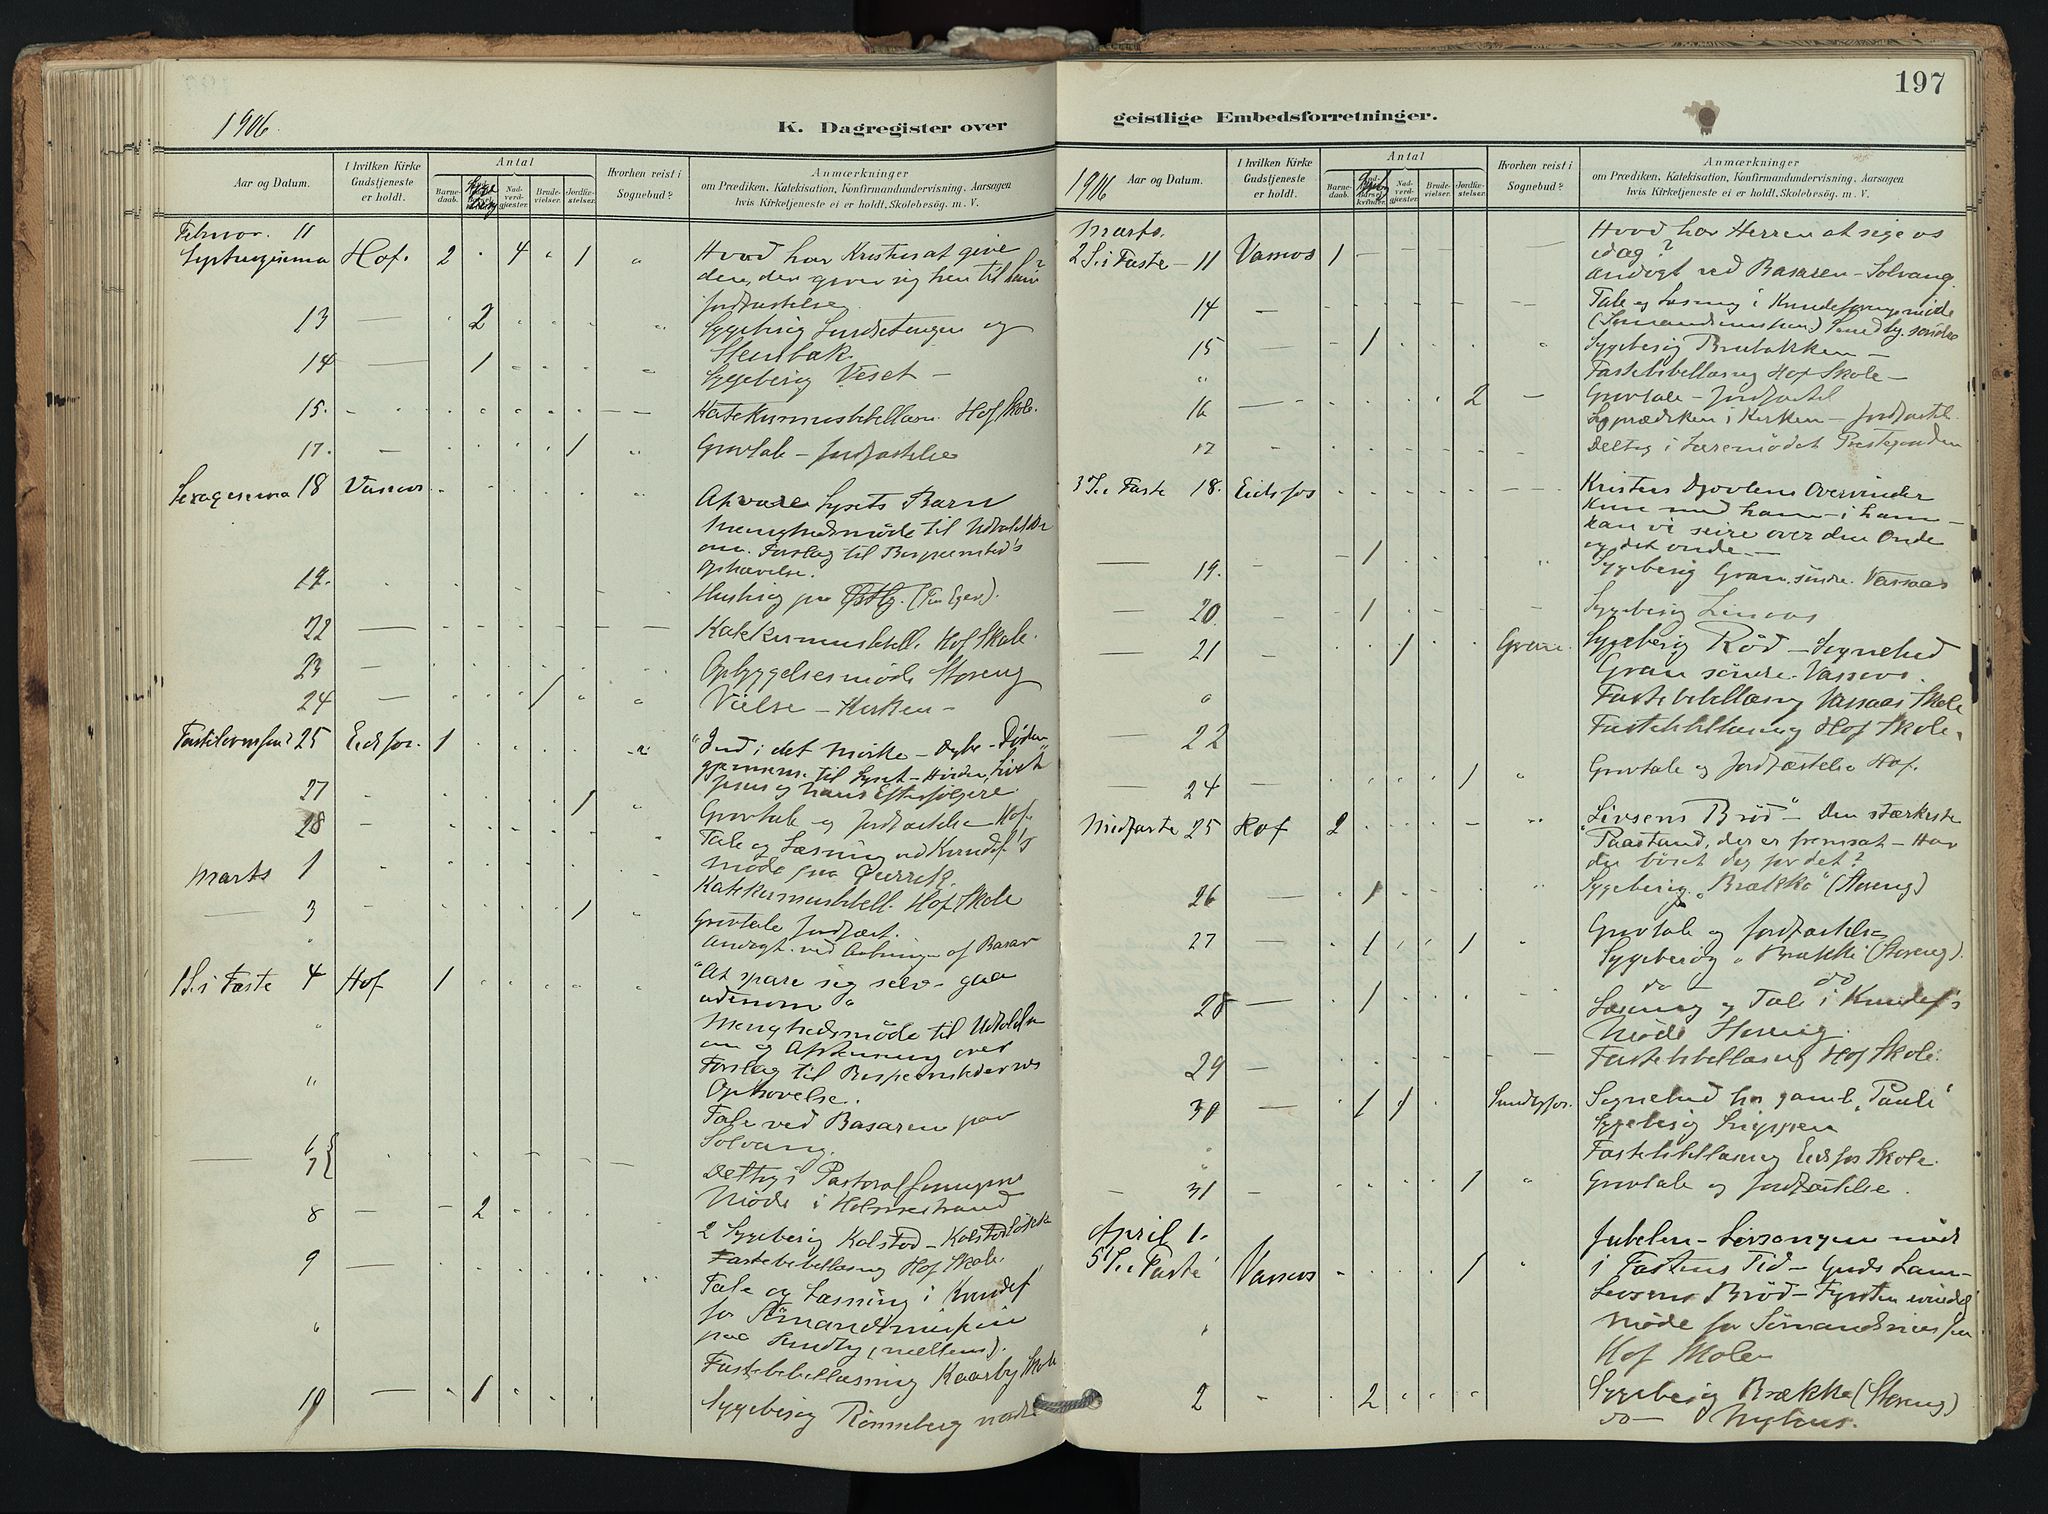 1906.
K. Dagregister over
Aar og Datum.
I hvilken Kirke Gudstjeneste er holdt.
Antal
Barne-daab.
Syge
Nad-verd-gjester.
Brude-vielser.
Jordfæ-stelser.
Hvorhen reist i Sognebud?
Anmærkninger
om Prædiken, Katekisation, Konfirmandundervisning. Aarsagen
hvis Kirketjeneste ei er holdt, Skolebesøg. m. V.
Februar. 11
Septuagesima Hof. 2 4 1 Hvad har Kristus at give
den, der giver sig hen til ham?
Jordfæstelse
13 2 Sygebesøg og
Stenbæk
14 1 Sygebesøg Veset
15. Hof Skole.
17. 1 Gravtale – Jordfæstelse
Sexagesima 18 Vassaas At være Lysets Barn
Menighedsmøde til
om Forslag til
Ophævelse.
19. Husbesøg paa
22 Hof Skole.
23 Opbyggelsesmøde Storeng
24 1 Vielse – Kirken –
Fastelavnssønd 25 Eidsfos. 1 "Ind i det mørke – Dybe – Døden
gjennem til Lyset – Livet"
Jesus og hans Efterfølgere
27 1 Gravtale og Jordfæstelse Hof.
28 Tale og Læsning ved Kvindef's
Møde paa
Marts 1 Hof Skole
3 1 Gravtale Jordfæst.
" Andagt ved Aabningen af Basar
1 S. i Faste 4 Hof 1 "At spare sig selv – gaa
udenom"
" Menighedsmøde til Udtalelse
om og Afstemning over
Forslag til
Ophævelse.
" Tale ved Basaren paa
Solvang.
6
7 Deltog i Pastoralforeningens
Møde i Holmestrand
8 2 2 Sygebesøg Kolstad – Kolstad
9 Fastebibellæsning Hof Skole.
Tale og Læsning i Kvindef
" for Sømandsmission
paa Sundby (mellem).
Fastebibellæsning Kaarby Skole
10 1 Sygebesøg Rønneberg nordre
197
geistlige Embedsforretninger.
1906 Aar og Datum.
I hvilken Kirke Gudstjeneste er holdt.
Antal
Barne-daab.
Nad-verd-gjæster.
Brude-vielser.
Jordfæ-stelser.
Hvorhen reist i Sognebud?
Anmærkninger
om Prædiken, Katekisation, Konfirmandundervisning. Aarsagen
hvis Kirketjeneste ei er holdt, Skolebesøg. m. V.
Marts.
2 S. i Faste – 11 Vassaas 1 Hvad har Herren at sige os
idag?
Andagt ved Basaren – Solvang.
14 Tale og Læsning i Kvindeforeningsmøde
(Sømandsmission) Sundby søndre
15 1 Sygebesøg Brubakken –
" Fastebibellæsning Hof Skole –
16 2 Gravtale – Jordfæstel
Ligprædiken i Kirken – Jordfæstel.
17 Deltog i Læremødet Prestegaarden
3 S. i Faste 18. Eidsfos Kristus Djævlens Overvinder
Kun med ham – i ham –
kan vi seire over den Onde
og det onde. –
19. 1 Sygebesøg Gran søndre. Vassaas
20. 1 Sygebesøg
21 1 Gran. Sygebesøg Rød – Sognebud
Gran søndre. Vassaas.
" Fastebibellæsning Vassaas Skole
22 Fastebibellæsning Hof Skole.
24 1 Gravtale og Jordfæstelse Hof.
Midfaste 25 Hof 2 "Livsens Brød" – Den stærkeste
Paastand, der er fremsat – Har
du bøiet dig for det?
26 1 Sygebesøg. "Brække" (Storeng)
27 1 1 Gravtale og Jordfæstelse
Sygebesøg "Brække" (Storeng).
28 1 do do
Læsning og Tale i Kvindef's
Møde Storeng.
29 Fastebibellæsning Hof Skole.
30 1 1 Sundbyfos. Sognebud hos gamle "Paule"
Sygebesøg
" Fastebibellæsning Eidsfos Skole.
31 1 Gravtale og Jordfæstelse.
April 1.
5 S. i Faste Vassaas 1 Jubelen – Seirssangen midt
i Fastens Tid – Guds Lam –
Livsens Brød –
" Møde for Sømandsmission
Hof Skole
2 2 Sygebesøg Brække (Storeng)
do – Nyhus.